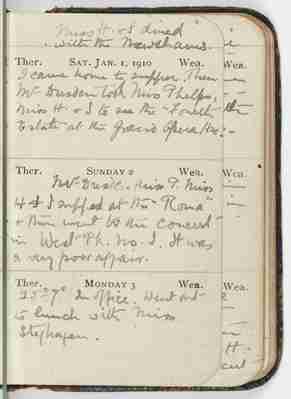 Miss H. & I dined
with the Newshams.
Ther. SAT. JAN. 1, 1910 Wea.
I came home to supper. Then
Mr took Miss Phelps,
Miss H. & I to see the "Fourth
Estate at the Grand Opera Ho.
Ther. SUNDAY 2 Wea.
Mr Miss P. Miss
H & I supped at the "Roma"
& then went to the concert
in West Ph. No. I. It was
a very poor affair.
Ther. MONDAY 3 Wea.
25-7° In office. Went out
to lunch with Miss